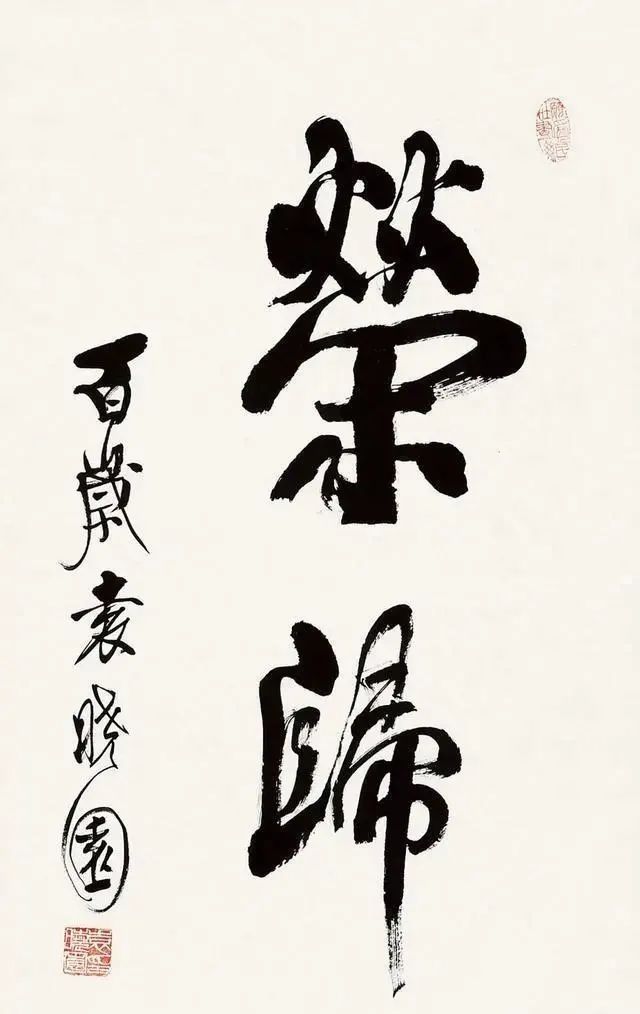 榮歸
百歲袁曉園